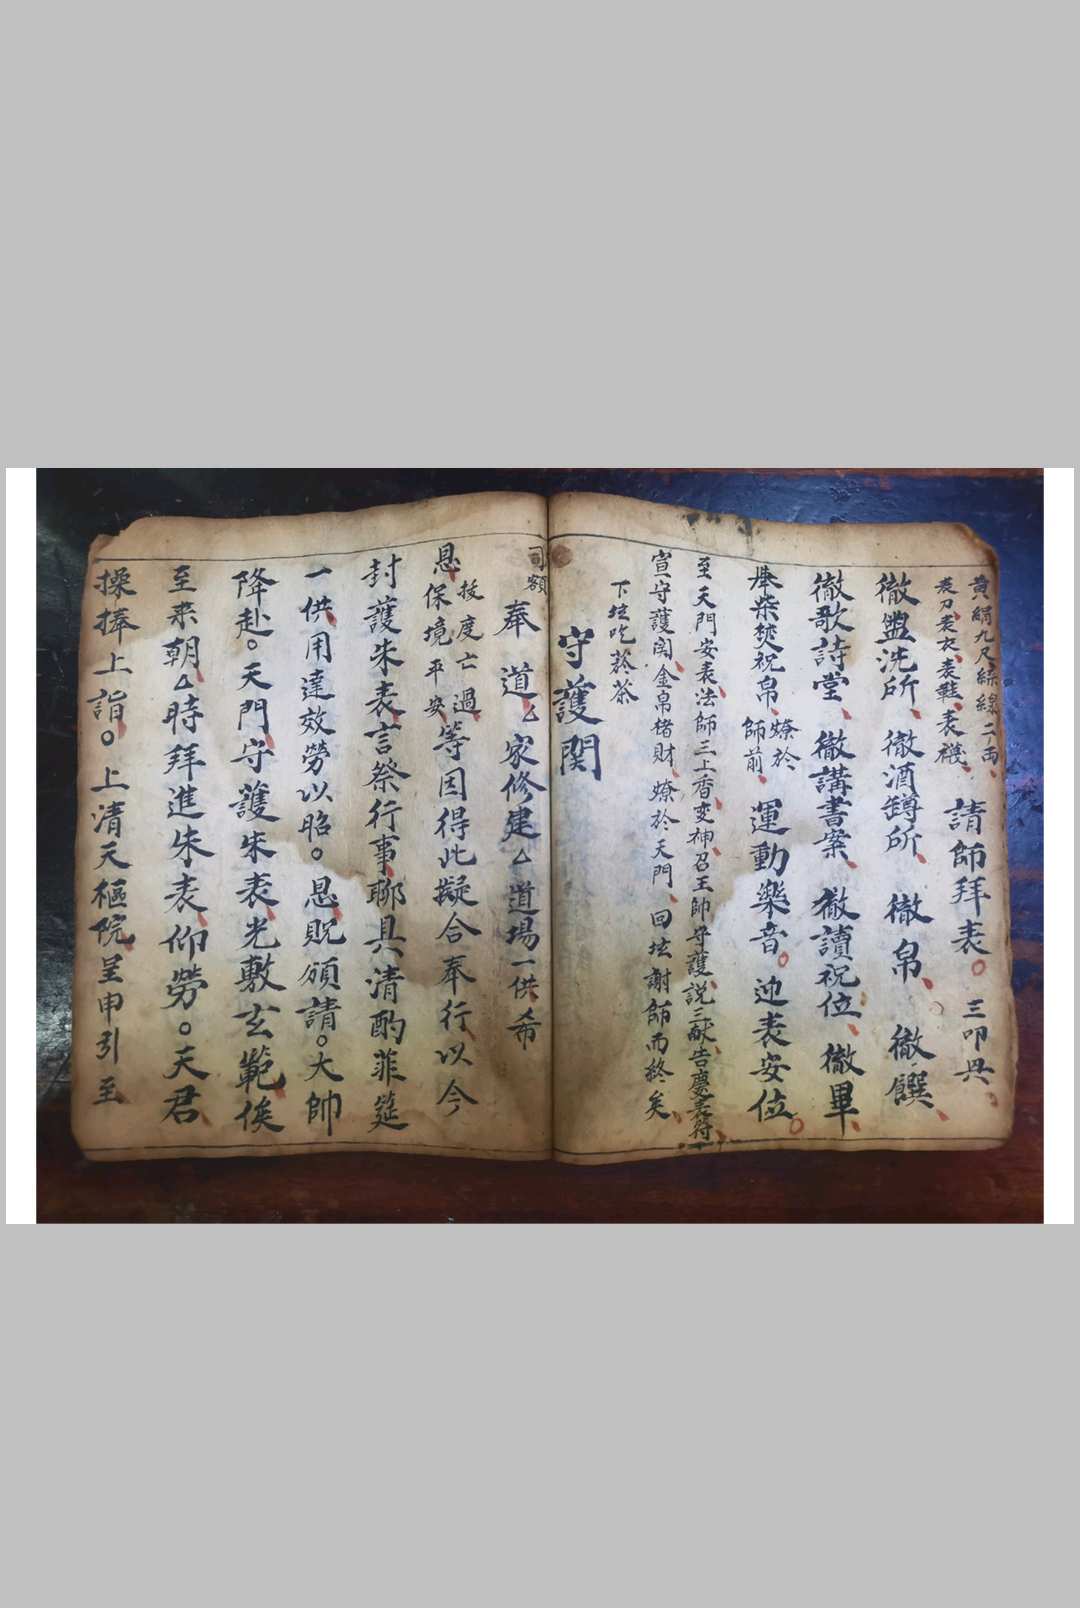 黄絹九尺、絲線二両、
表刀、表衣、表鞋、表襪、
請師拜表。三叩興、
徹盥洗所、徹酒罇所、徹帛、徹饌、
徹歌詩堂、徹講書案、徹讀祝位、徹畢、
舉柴焚祝帛、燎於師前、運動樂音。迎表安位。
至天門安表、法師三上香、变神、召王帥守護、説三献、告慶表符
宣守護関、金帛楮財、燎於天門、回坛謝師而終矣、
下坛吃菸茶
守護関
司額
奉道△家修建△道場一供、希
恩 投度亡過 保境平安 等因得此擬合奉行以今
封護朱表、言祭行事、聊具清酌菲筵
一供、用達效勞以昭。恩貺、頒請。大帥
降赴。天門守護朱表、光敷玄範、俟
至来朝△時拜進朱表、仰勞。天君
操捧上詣。上清天樞院、呈申引至